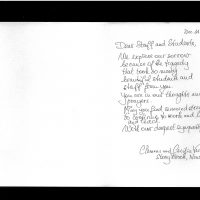 Dear Staff and Students,
We express our sorrow
because of the tragedy
that took so many
beautiful students and
staff from you.
You are in our thoughts and
prayers.
May you find renewed strength
to continue to work and
and
With our deepest sympathy
and